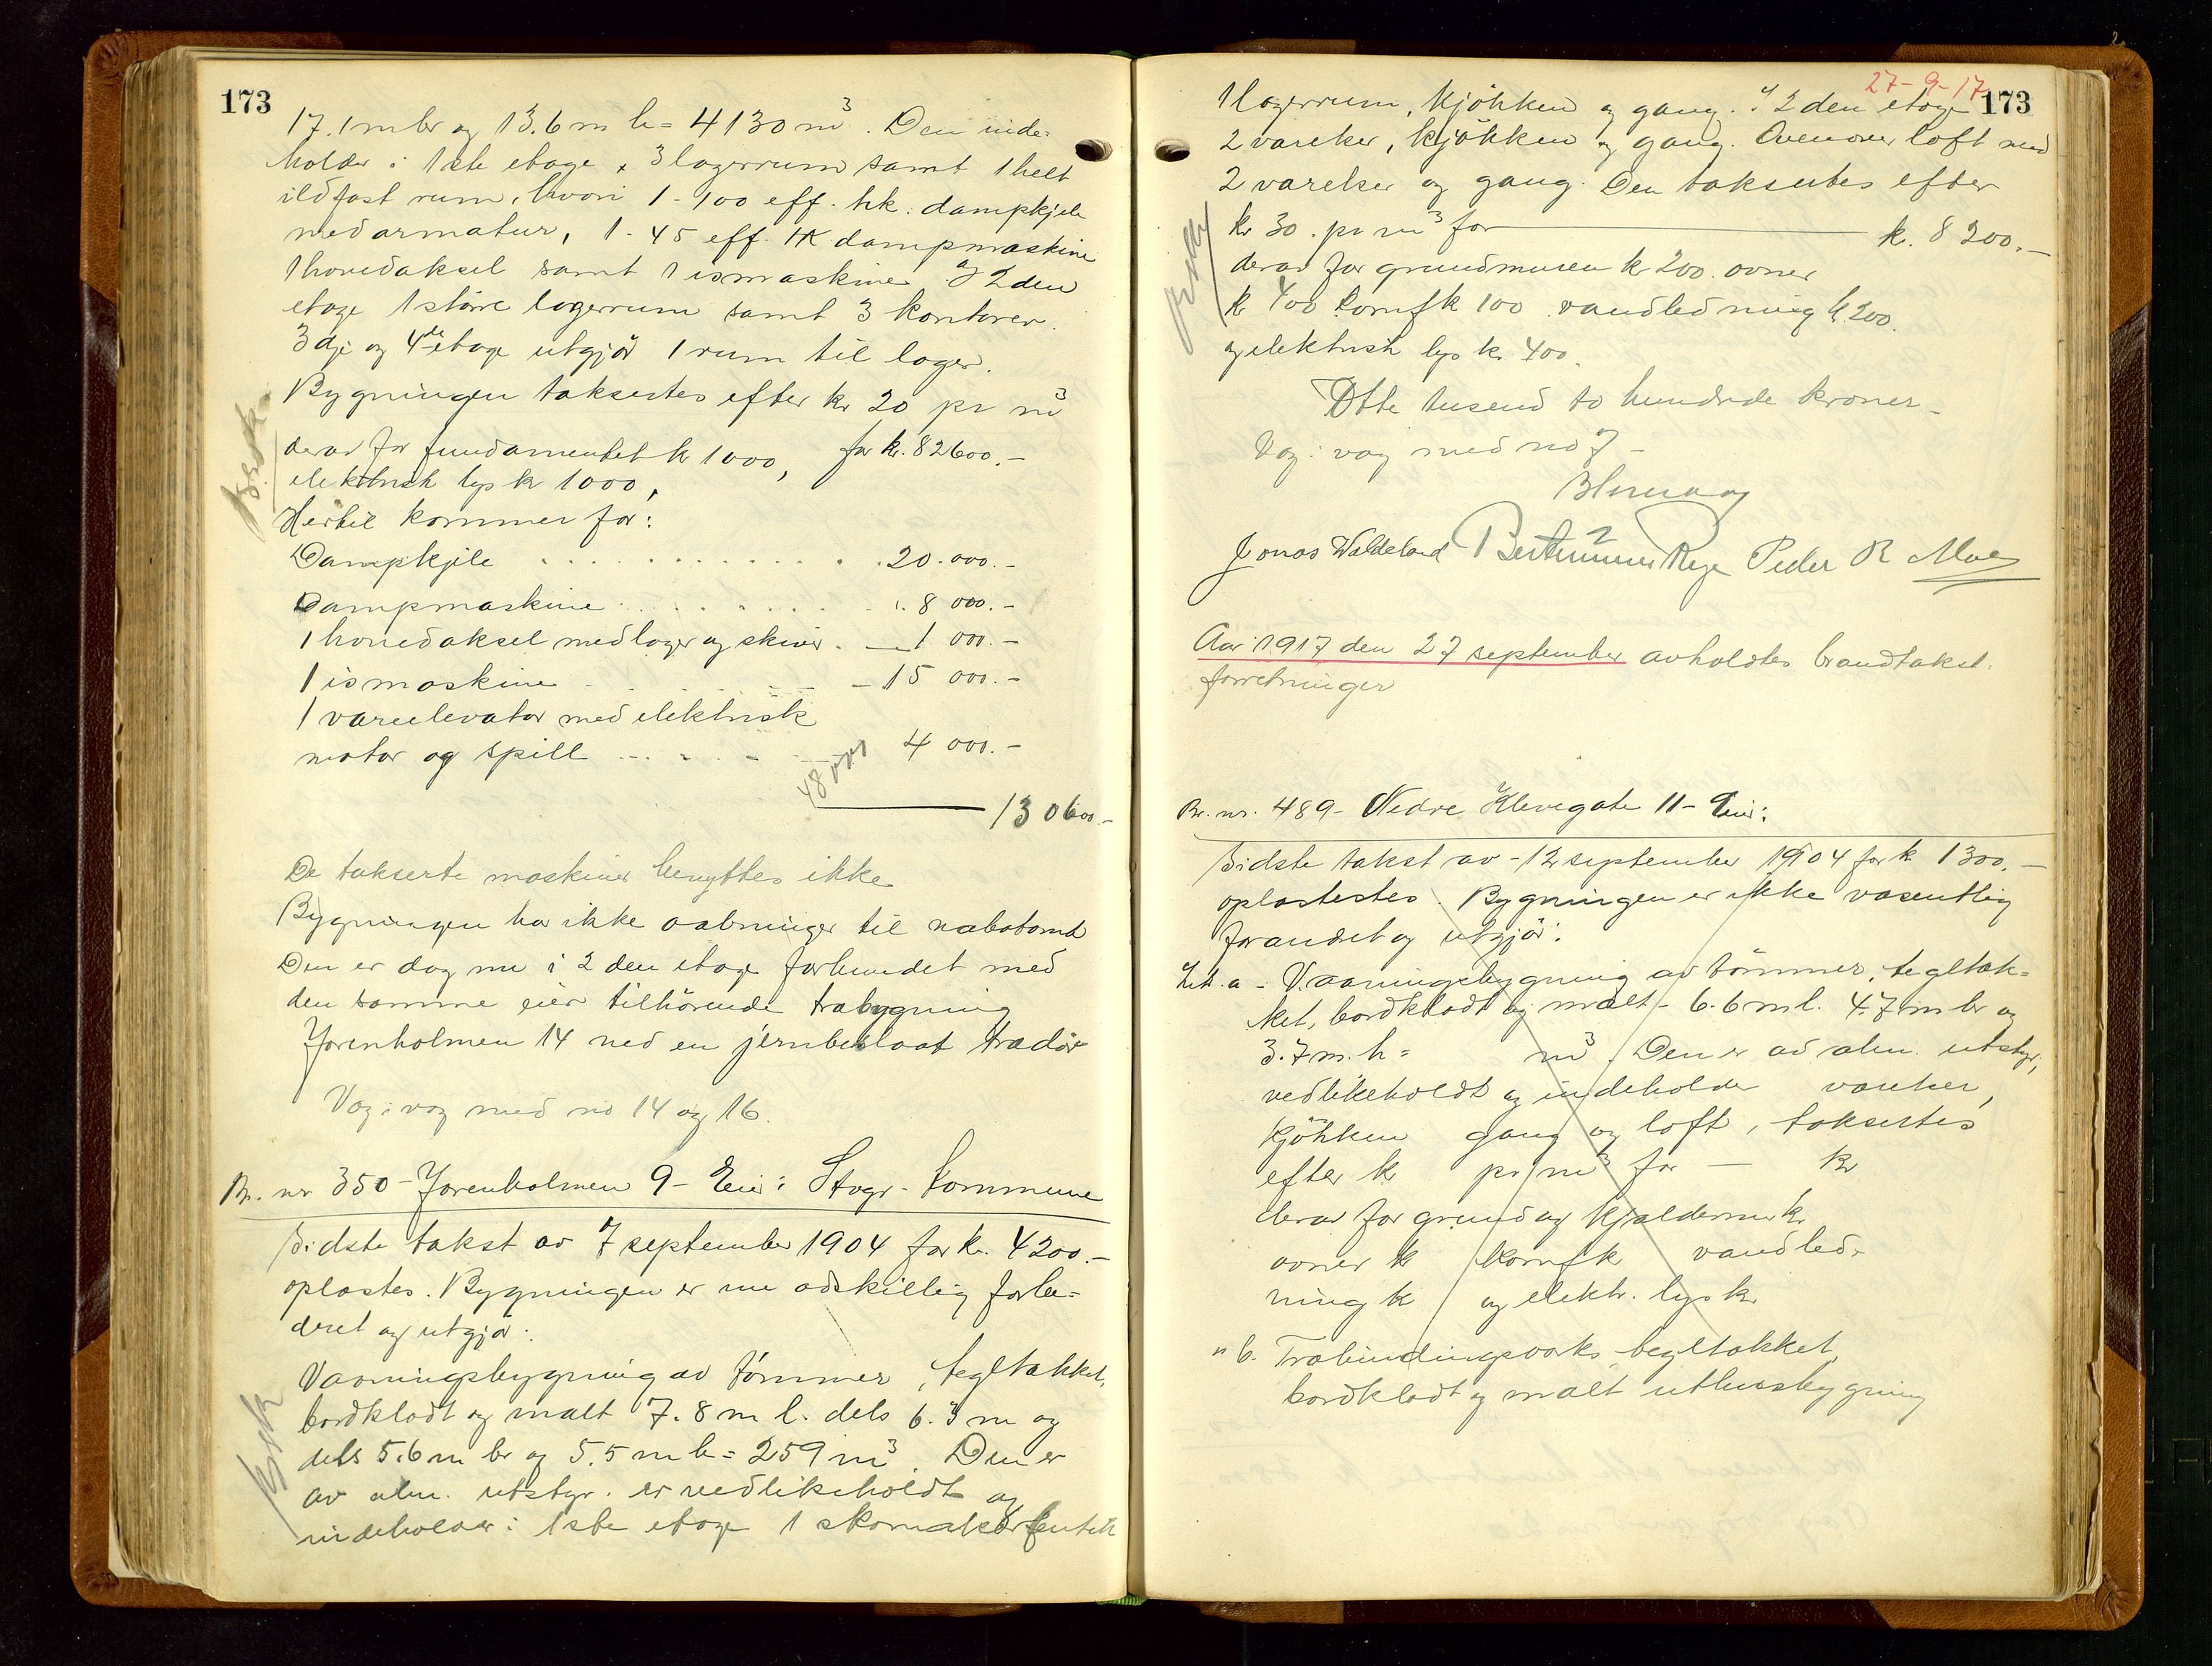 173
17.1 m br og 13.6 m h = 4130 m³. Den inde-
holder i 1ste etage, 3 lagerrum samt 1 helt
ildfast rum, hvori 1 - 100 eff. hk. dampkjele
med armatur, 1 - 45 eff. HK dampmaskine
1 hovedaksel samt 1 ismaskine. I 2den
etage 1 större lagerrum samt 3 kontorer.
3dje og 4de etage utgjör 1 rum til lager.
Bygningen taksertes efter kr 20 pr m³
for kr. 82600.-
derav for fundamentet kr 1000,
elektrisk lys kr 1000,
Hertil kommer for:
Dampkjele . . . . . . . . . . 20.000.-
Dampmaskine . . . . . . . . 8 000.-
1 hovedaksel med lager og skiver. — 1 000.-
1 ismaskine - - - - 15 000.-
1 vareelevator med elektrisk
motor og spill - - - - 4 000.-
48000
130600.-
De takserte maskiner benyttes ikke
Bygningen har ikke aabninger til nabotomt
Den er dog nu i 2den etage forbundet med
den samme eier tilhörende træbygning
Jorenholmen 14 ved en jernbeslaat trædör
Væg i væg med no 14 og 16.
Br. nr 350 - Jorenholmen 9 - Eier: Stvgr. kommune
Sidste takst av 7 september 1904 for kr. 4200.-
oplæstes. Bygningen er nu adskillig forbe-
dret og utgjör:
Vaaningsbygning av tömmer, tegltækket,
bordklædt og malt 7.8 m l. dels 6.3 m og
dels 5.6 m br og 5.5 m h = 259 m³. Den er
av alm. utstyr. er vedlikeholdt og
indeholder i 1ste etage 1 skomakerbutik
27-9-17
173
1 lagerrum, kjökken og gang. I 2den etage
2 værelser, kjökken og gang. Ovenover loft med
2 værelser og gang. Den taksertes efter
kr 30. pr m³ for — kr. 8 200.-
derav for grundmuren kr 200. ovner
kr 400 komf kr 100 vandledning kr 200.
og elektrisk lys kr 400.
Otte tusend to hundrede kroner -
Væg i væg med no 7 -
Jonas Waldeland Peder R Moe
Aar 1917 den 27 september avholdtes brandtakst-
forretninger
Br. nr. 489 - Nedre Klevegate 11 - Eier:
Sidste takst av - 12 september 1904 for kr 1300.-
oplæstes. Bygningen er ikke væsentlig
forandret og utgjör:
Lit. a - Vaaningsbygning av tömmer, tegltæk-
ket, bordklædt og malt - 6.6 m l. 4.7 m br og
3.7 m. h = m³. Den er av alm. utstyr,
vedlikeholdt og indeholder værelser,
kjökken gang og loft, taksertes
efter kr pr m³ for — kr
derav for grund og kjælderm. kr.
ovner kr komf kr vandled-
ning kr og elektr. lys kr
" b. Træbindingsverks tegltækket,
bordklædt og malt uthusbygning